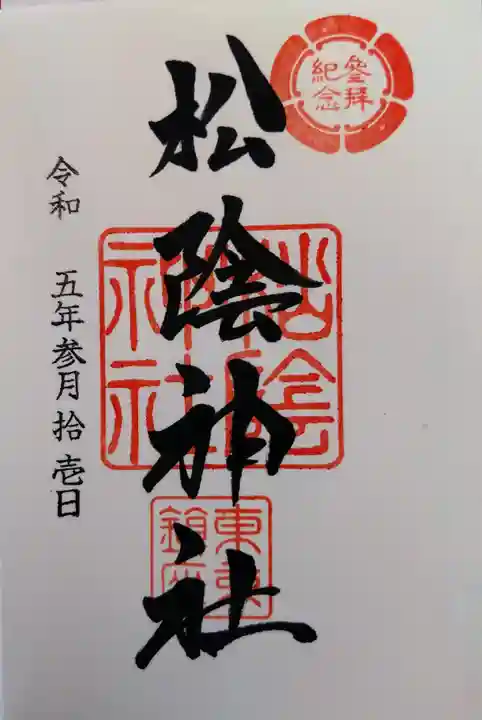 参拜
紀念
松陰神社
松陰
神社
東京
鎮座
令和 五年参月拾壱日